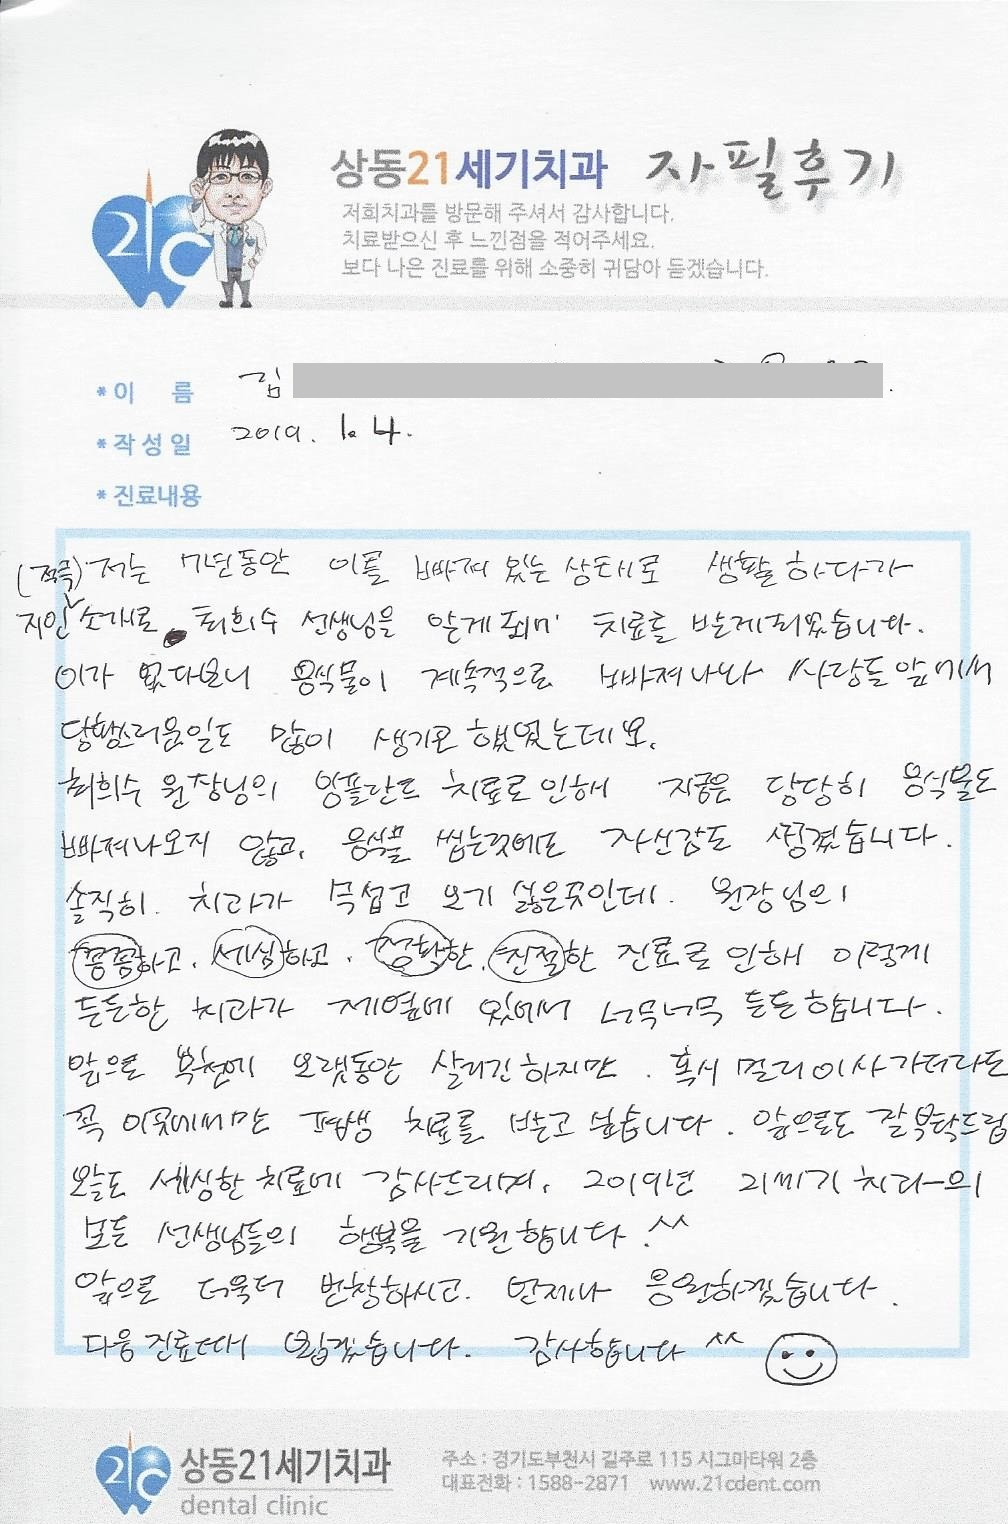 상동21세기치과 자필후기
저희치과를 방문해 주셔서 감사합니다.
치료받으신 후 느낀점을 적어주세요.
보다 나은 진료를 위해 소중히 귀담아 듣겠습니다.
21C
*이 름 김
*작성일 2019. 1. 4.
*진료내용
저는 7년동안 이를 빠져 있는 상태로 생활하다가
(적극) 지인 소개로 최희수 선생님을 알게되어 치료를 받게되었습니다.
이가 없다보니 음식물이 계속적으로 빠져나와 사람들 앞에서
당황스러운일도 많이 생기곤 했었는데요.
최희수 원장님의 임플란트 치료로 인해 지금은 당당히 음식물도
빠져나오지 않고, 음식물 씹는것에도 자신감도 생겼습니다.
솔직히. 치과가 무섭고 오기 싫은곳인데. 원장님의
꼼꼼하고, 세심하고, 정확한, 친절한 진료로 인해 이렇게
든든한 치과가 제옆에 있어서 너무너무 든든합니다.
앞으로 부천에 오랫동안 살리긴 하지만. 혹시 멀리 이사가더라도
꼭 이곳에서만 평생 치료를 받고 싶습니다. 앞으로도 잘부탁드림
오늘도 세심한 치료에 감사드리며, 2019년 21세기 치과의
모든 선생님들의 행복을 기원합니다. ^^
앞으로 더욱더 번창하시고. 언제나 응원하겠습니다.
다음 진료때 뵙겠습니다. 감사합니다 ^^
21C 상동21세기치과
dental clinic
주소 : 경기도부천시 길주로 115 시그마타워 2층
대표전화 : 1588-2871 www.21cdent.com